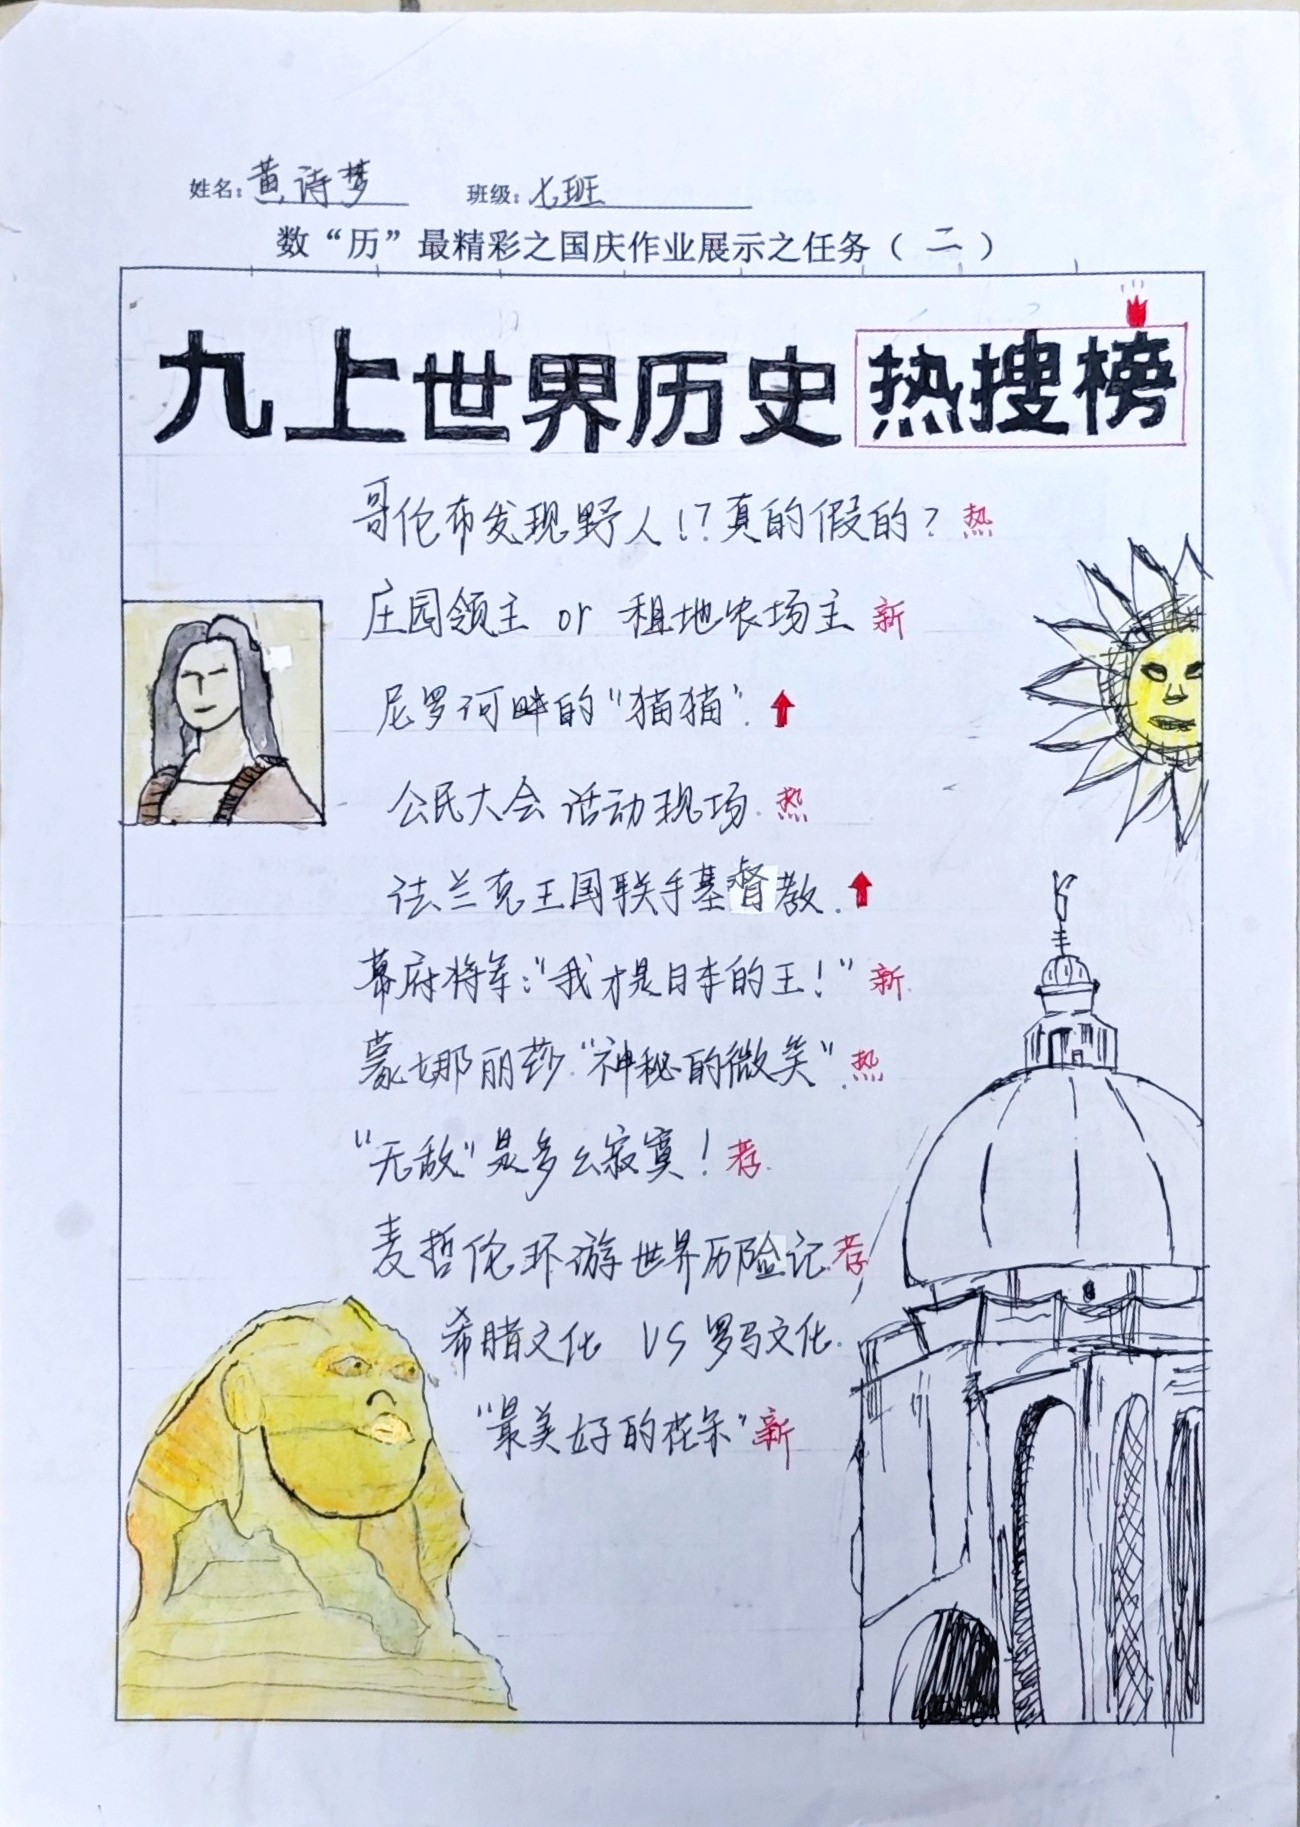 姓名：黄诗梦 班级：七班
数“历”最精彩之国庆作业展示之任务（二）
九上世界历史热搜榜
哥伦布发现野人!？真的假的？热
庄园领主 or 租地农场主 新
尼罗河畔的“猫猫”.
公民大会活动现场.热
法兰克王国联手基督教.
幕府将军：“我才是日本的王！”新.
蒙娜丽莎.“神秘的微笑”.热
“无敌”是多么寂寞！荐.
麦哲伦环游世界历险记.荐
希腊文化 VS 罗马文化.
“最美好的花朵”新